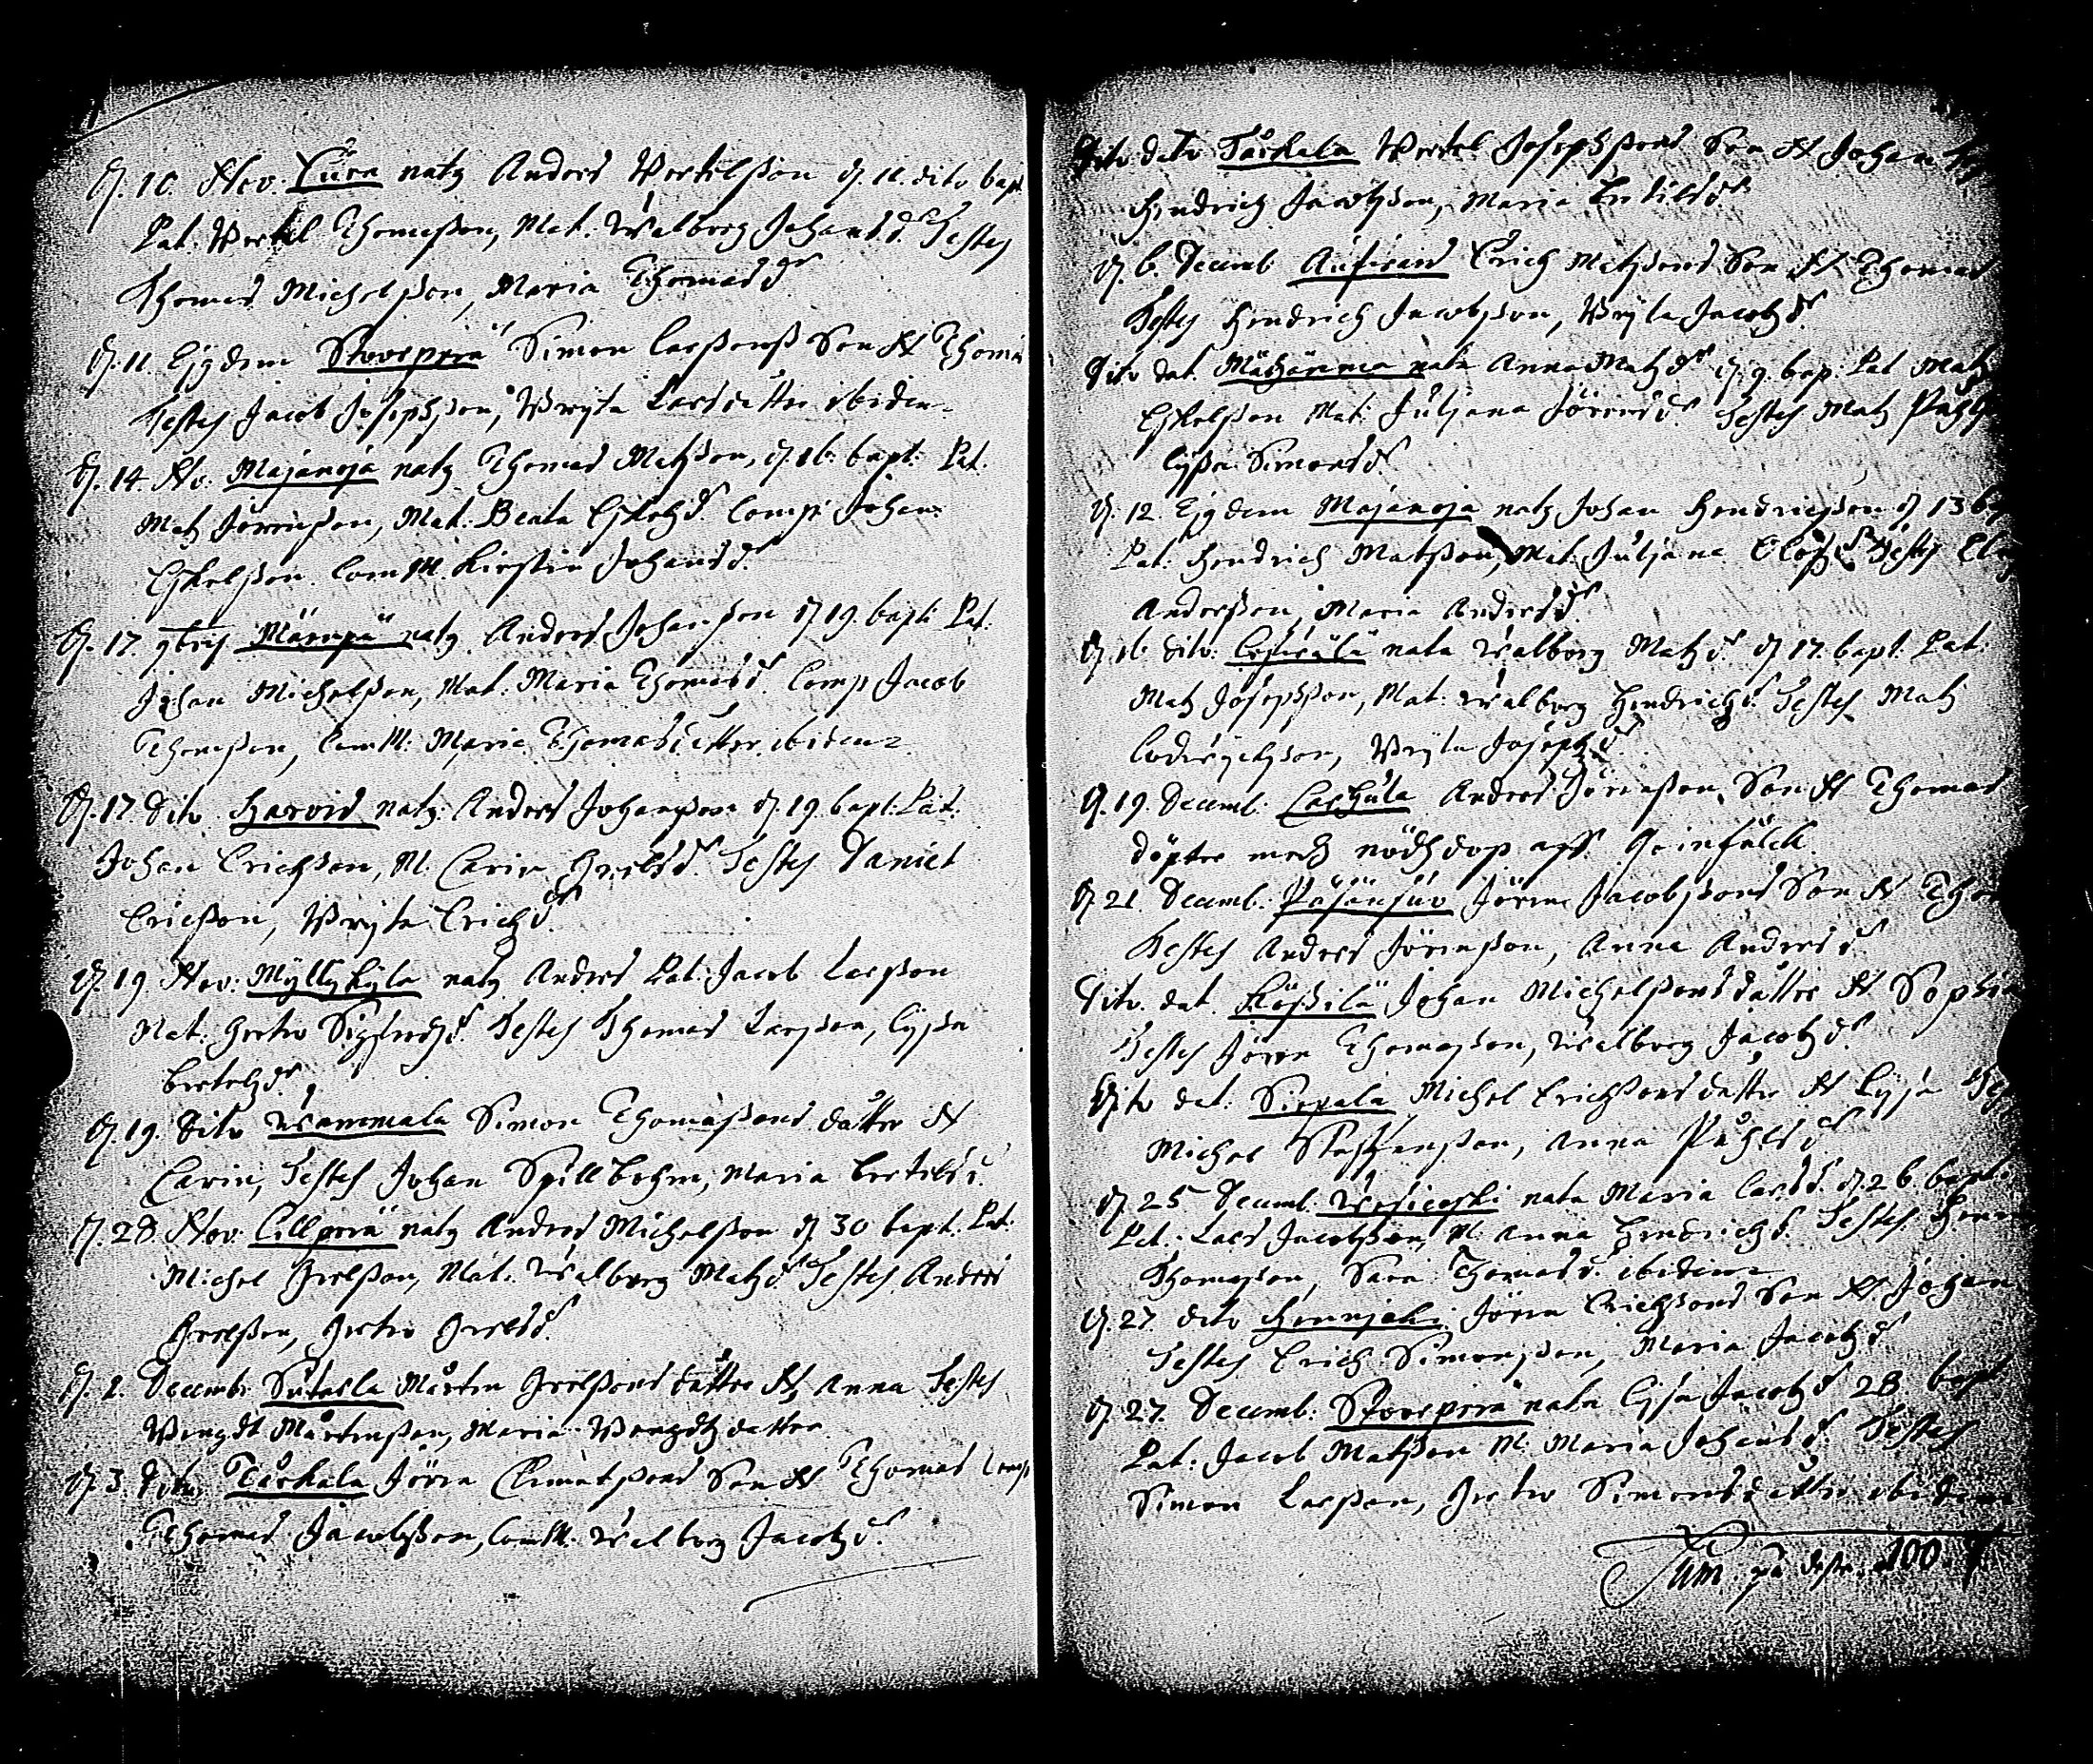 D. 10 Nov. Cura natq Anders Bertelsson d. 11. dito bapt
Pat. Bertel Thomasson, Mat: Walborg Johansd. Testes
Thomas Michelsson, Maria Thomasdr
D. 11 Ejgdem Stoorperä Simon Larssons Son N Thomas
Testes Jacob Josephsson, Bryta Larsdotter ibidem
D. 14. No: Majanoja natq Thomas Matzson, d. 16. bapt: Pat.
Matz Jörensson, Mat: Beata Eskelsd. Comp: Johan
Eskelsson. Com M. Kirstin Johansd.
D. 17. 9bris natq Anders Johansson d 19. bapt: Pat.
Johan Michelsson, Mat. Maria Thomasd. Comp Jacob
Thomsson, Com M: Maria Thomasdotter ibidem
D. 17. Dito Harois natq: Anders Johansson d. 19. bapt. Pat.
Johan Erichsson, M. Carin Grelsd. Testes Daniel
Ericsson, Bryta Erichsd.
D. 19 Nov: Myllykyla natq Anders Pat: Jacob Larsson
Mat: Gertru Sigfredsd. Testes Thomas Larsson, Lyssa
Bertelsdr
D. 19. Dito Wammala Simon Thomassons dotter N
Carin, Testes Johan Spillbohm, Maria Bertelsd.
D. 28 Nov: Cillperä natq Anders Michelsson d 30 bapt. Pat:
Michel Grelsson, Mat. Walborg Matzd. Testes Anders
Grelsson, Gertru Grelsd.
D. 2. Decemb: Sutarla Mårten Grelssons dotter N, Anna Testes
Bengdt Mårtensson, Maria Bengdtzdotter
D. 3. Dito Tackala Jöran Clemetssons Son N Thomas Comp
Thomas Jacobsson, Com M: Walborg Jacobsd.
Dito dato Tackala Bertel Josephssons Son N Johan
Hendrich Jacobsson, Maria Bertilsd
D. 6. Decemb Erich Matzsons Son N Thomas
Testes Hendrich Jacobsson, Bryta Jacobsd.
Dito dat. nata Anna Matzdr d. 9. bap: Pat Matz
Eskelsson Mat: Juliana Jörensd. Testes Matz
Lyssa Simonsd
D. 12 Ejgdem Majanoja natq Johan Hendricsson d 13 ba
Pat: Hendrich Matsson, Mat. Juliana Olofsd. Testes
Andersson, Maria Andersdr
D. 16 dito: nata Walborg Matzd. d 17. bapt: Pat:
Matz Josephsson, Mat: Walborg Hendrichsd. Testes Matz
Bryta Josephsd.
D. 19. Decemb: Anders Jörensson Son N Thomas
döpter medh nödhdop aff
D. 21. Decemb: Jören Jacobssons Son N Thom
Testes Anders Jörensson, Anna Andersd
Dito. dat. Johan Michelssons dotter N Sophia
Testes Jören Thomasson, Walborg Jacobsd.
Dito dat: Sippala Michel Erichssons dotter N Lyssa
Michel Staffansson, Anna Påhlsd
D. 25 Decemb: nata Maria Larsd. d. 26. bapt:
Pat: Lars Jacobsson, M. Anna Hendrichsd. Testes
Thomasson, Sara Thomasd. ibidem
D. 27. dito Jören Erichssons Son N. Johan
Testes Erich Simonsson, Maria Jacobsd
D. 27. Decemb: Stoorperä nata Lyssa Jacobsd 28. bapt
Pat: Jacob Matsson M: Maria Johansd. Testes
Simon Larsson, Gertru Simonsdotter ibidem
Sum på desse 100